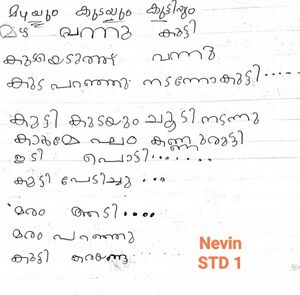 മഴയും കുടയും കുട്ടിയും
മഴ വന്നു കുട്ടി
കുടയെടുത്ത് വന്നു
കുട പറഞ്ഞു നടന്നോകുട്ടി......
കുട്ടി കുടയും ചൂടി നടന്നു
കണ്ണുരുട്ടി
ഇടി പൊടി.......
കുട്ടി പേടിച്ചു ...
മരം ആടി....
മരം പറഞ്ഞു
കുട്ടി
Nevin
STD 1